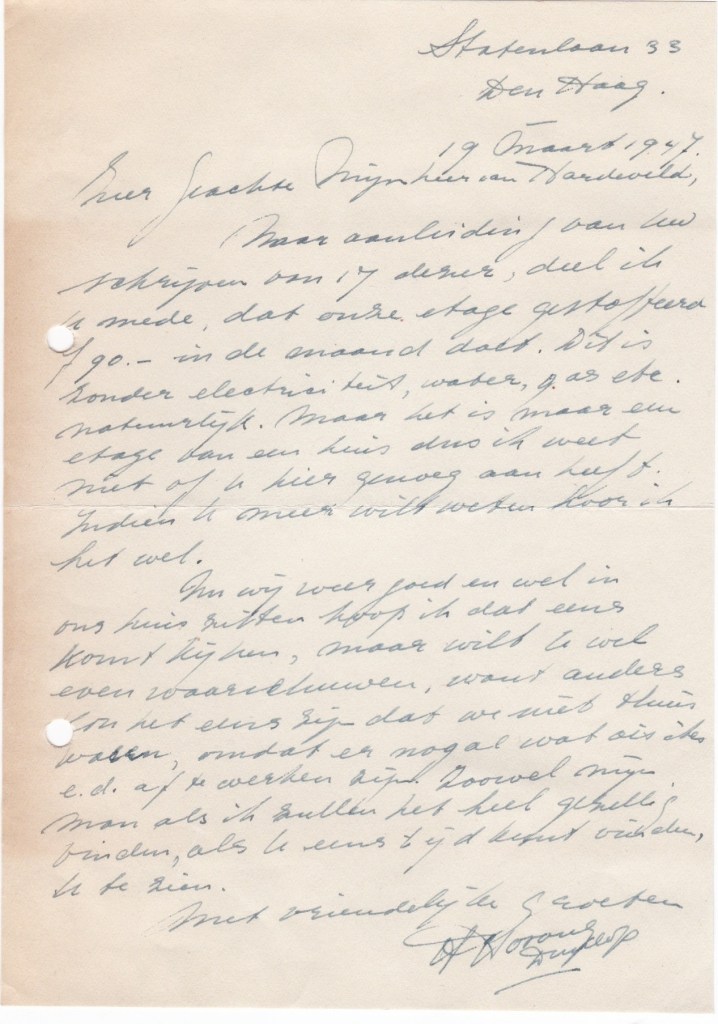 Statenlaan 33
Den Haag.
19 Maart 1947.
Zeer Geachte Mijnheer van Hardeveld,
Naar aanleiding van Uw
schrijven van 17 dezer, deel ik
U mede, dat onze etage gestoffeerd
f 90.- in de maand doet. Dit is
zonder electriciteit, water, gas etc.
natuurlijk. Maar het is maar een
etage van een huis dus ik weet
niet of U hier genoeg aan heeft.
Indien U meer wilt weten hoor ik
het wel.
Nu wij weer goed en wel in
ons huis zitten hoop ik dat eens
komt kijken, maar wilt U wel
even waarschuwen, want anders
kon het eens zijn dat we niet thuis
waren, omdat er nogal wat visites
e.d. af te werken zijn. Zoowel mijn
man als ik zullen het heel gezellig
vinden, als U eens tijd kunt vinden,
U te zien.
Met vriendelijke groeten